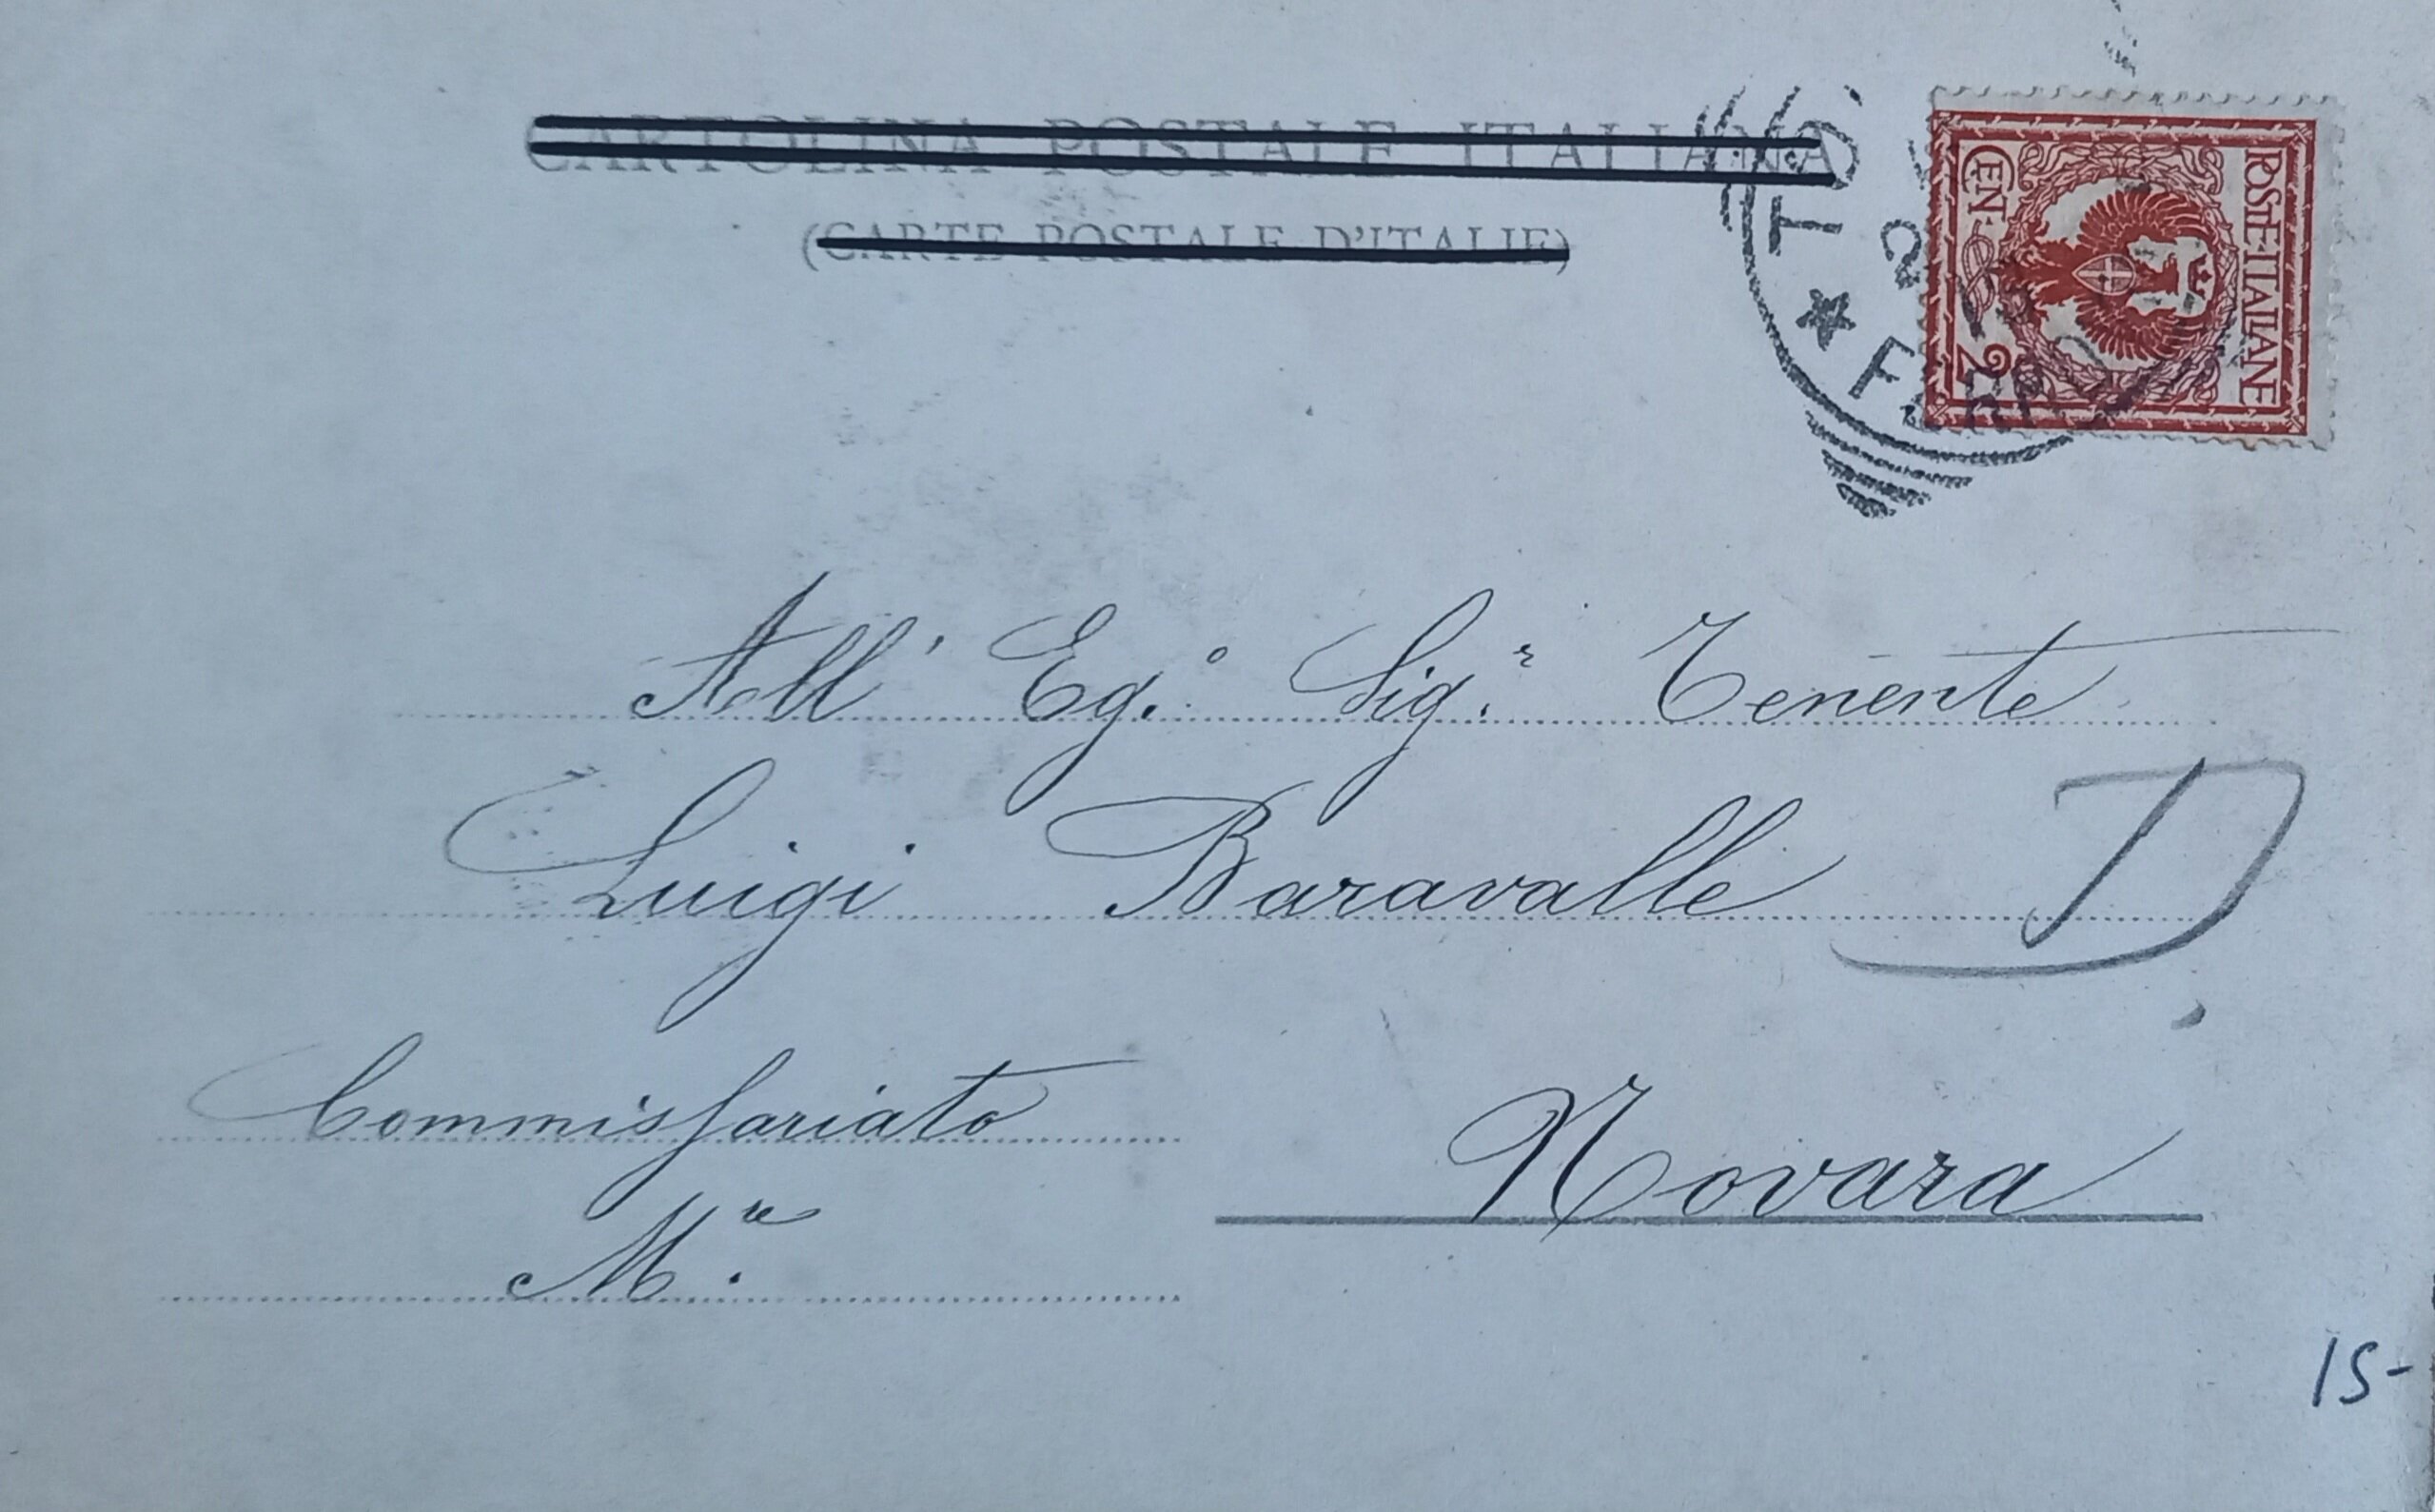 CARTOLINA POSTALE ITALIANA
(CARTE POSTALE D'ITALIE)
POSTE·ITALIANE
CEN. 2
All' Eg.º Sig.r Tenente
Luigi Baravalle
D.
Commissariato
M.re
Novara
15-